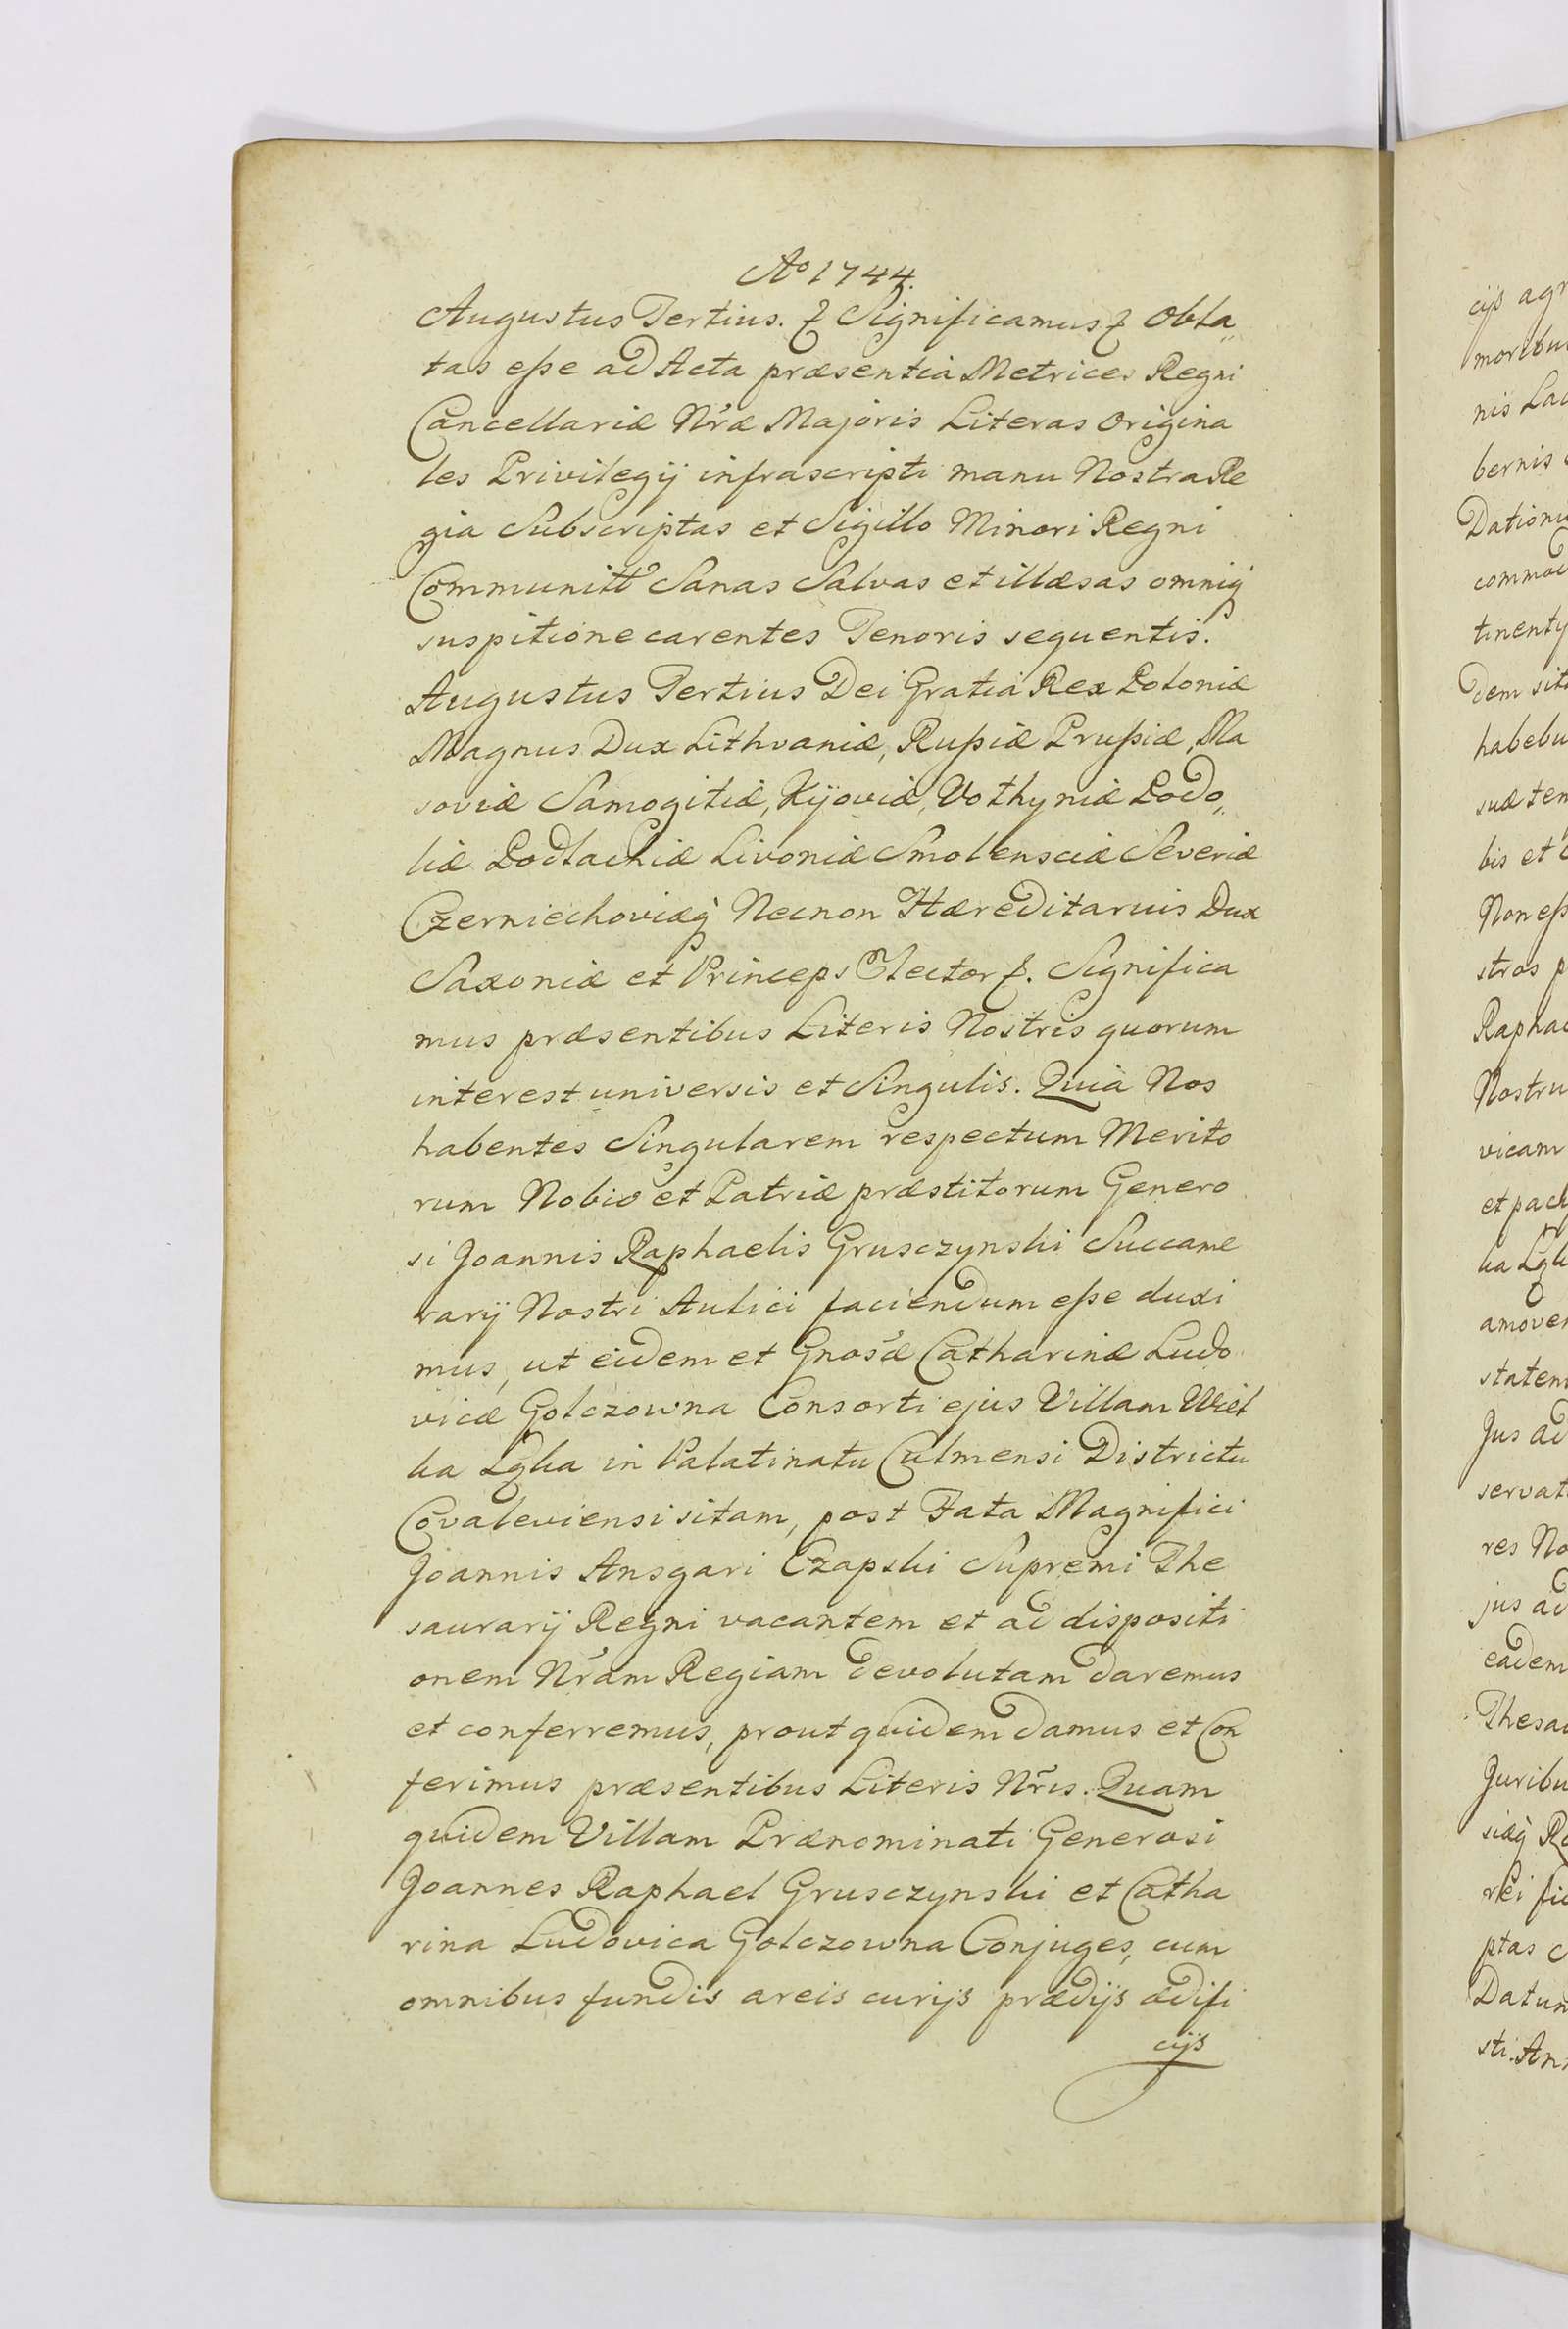 Aº 1744.
Augustus Tertius. & Significamus & Obla„
tas eſse ad Acta præsentia Metrices Regni
Cancellariæ Nr̃æ Majoris Literas Origina
les Privilegij infrascripti manu Nostra Re
gia Subscriptas et Sigillo Minori Regni
Communitt Sanas Salvas et illæsas omniq
suspitione carentes Tenoris sequentis.
Augustus Tertius Dei Gratia Rex Poloniæ
Magnus Dux Lithvaniæ, Ruſsiæ Pruſsiæ, Ma
soviæ Samogitiæ, Kijoviæ, Volhyniæ Podo„
liæ Podlachiæ Livoniæ Smolensciæ Severiæ
Czerniechoviæq Necnon Hæreditarius Dux
Saxoniæ et Princeps Elector &. Significa
mus præsentibus Literis Nostris quorum
interest universis et Singulis. Quia Nos
habentes Singularem respectum Merito
rum Nobis et Patriæ præstitorum Genero
si Joannis Raphaelis Grusczynski Succame
rarij Nostri Aulici faciendum eſse duxi
mus, ut eidem et Gnos̃æ Catharinæ Ludo
vicæ Golczowna Consorti ejus Villam Wiel
ka Łąka in Palatinatu Culmensi Districtu
Covaleviensi sitam, post Fata Magnifici
Joannis Ansgari Czapski Supremi The
saurarij Regni vacantem et ad dispositi
onem Nr̃am Regiam devolutam daremus
et conferremus, prout quidem damus et Con
ferimus præsentibus Literis Nr̃is. Quam
quidem Villam Prænominati Generosi
Joannes Raphael Grusczynski et Catha
rina Ludovica Golczowna Conjuges, cum
omnibus fundis areis curijs prædijs ædifi
cijs
cijs agr
moribu
nis La
bernis
Dationi
commod
tinenty
dem sit
habebu
suæ tem
bis et
Non eſs
stros p
Rapha
Nostru
vicam
et pac
ka Łąk
amove
statem
Jus ad
servat
res No
jus ad
eadem
Thesa
Juribu
siæq Re
rei fi
ptas
Datum
sti. An